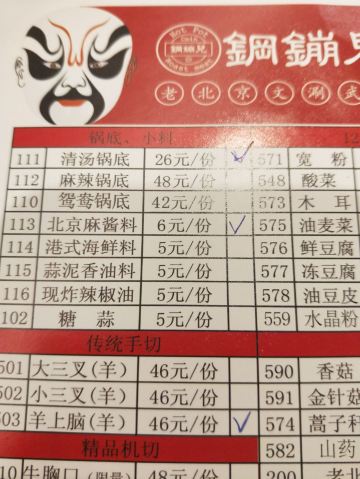 Hot Pot
鋼鏰兒
Roast meat
鋼鏰兒
老北京文涮
锅底、小料
111 清汤锅底 26元/份 571 宽粉
112 麻辣锅底 48元/份 548 酸菜
110 鸳鸯锅底 42元/份 573 木耳
113 北京麻酱料 6元/份 575 油麦菜
114 港式海鲜料 5元/份 576 鲜豆腐
115 蒜泥香油料 5元/份 577 冻豆腐
116 现炸辣椒油 5元/份 578 油豆皮
102 糖蒜 5元/份 559 水晶粉
传统手切
501 大三叉(羊) 46元/份 590 香菇
502 小三叉(羊) 46元/份 591 金针菇
503 羊上脑(羊) 46元/份 574 蒿子秆
精品机切 582 山药
10 牛胸口(限量) 48元/份 200 老北